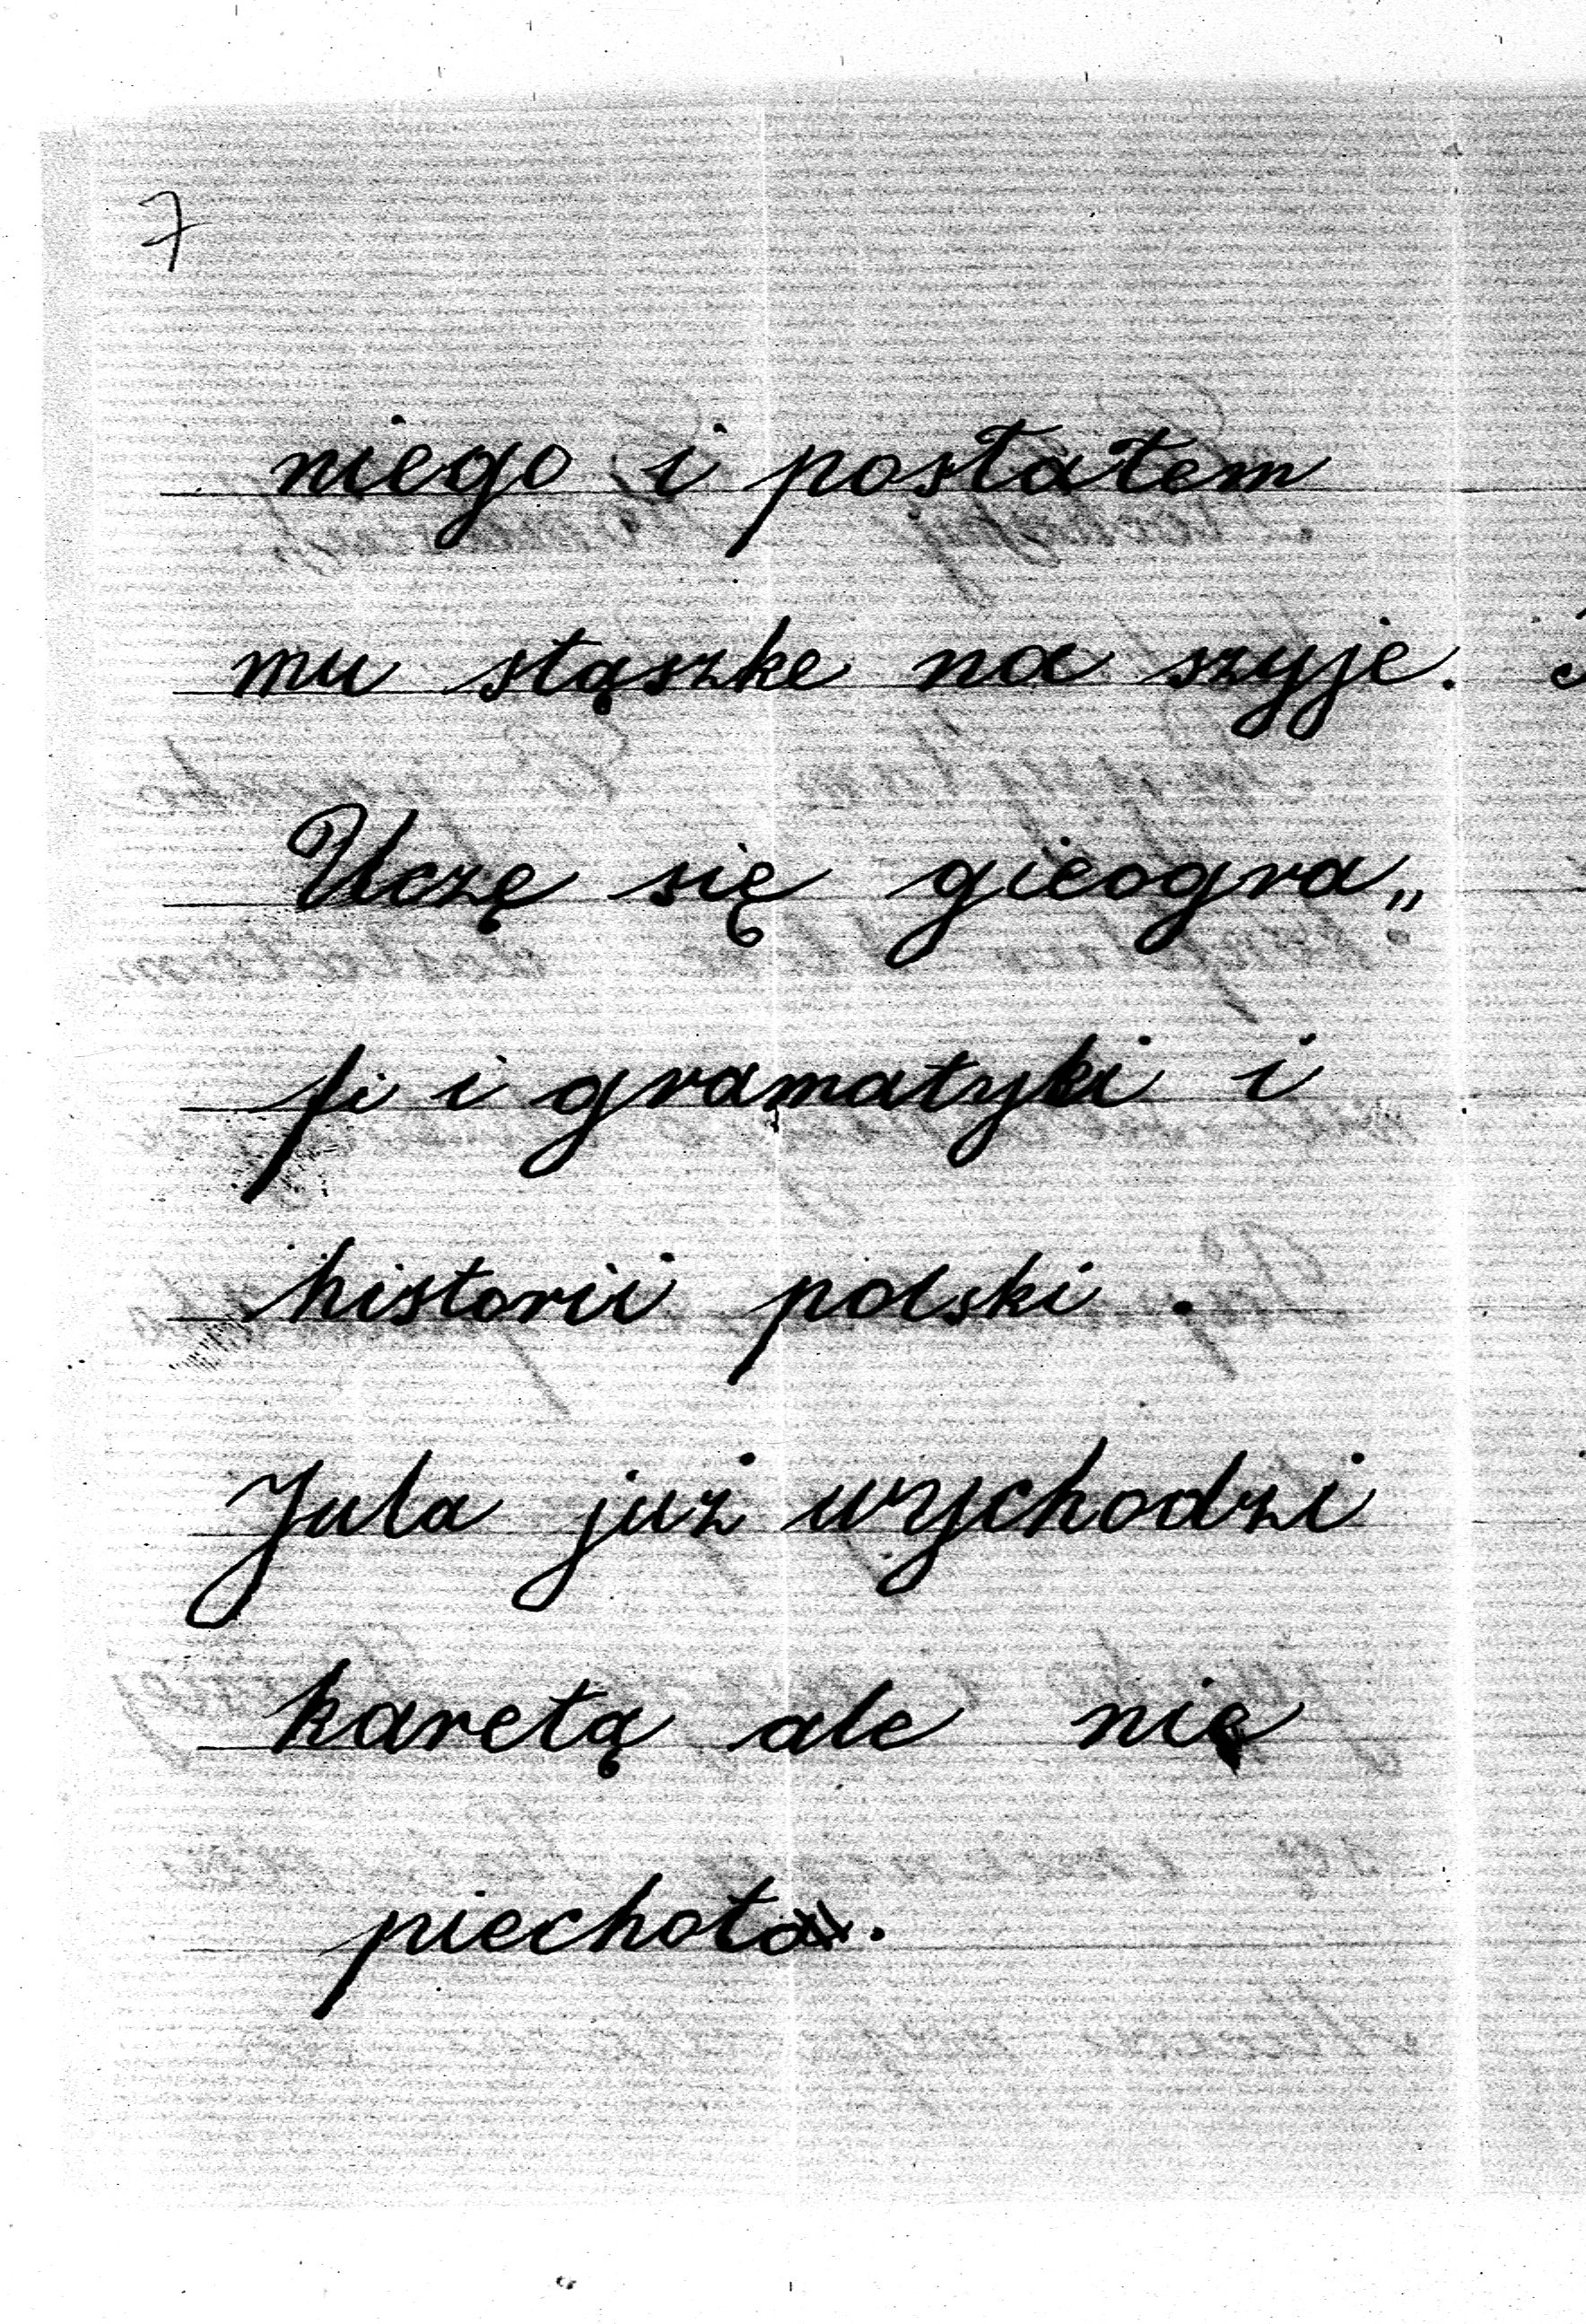 7
niego i posłałem
mu stąszke na szyje.
Uczę się gieogra„
fi i gramatyki i
historii polski.
Jula już wychodzi
karetą ale nie
piechota.